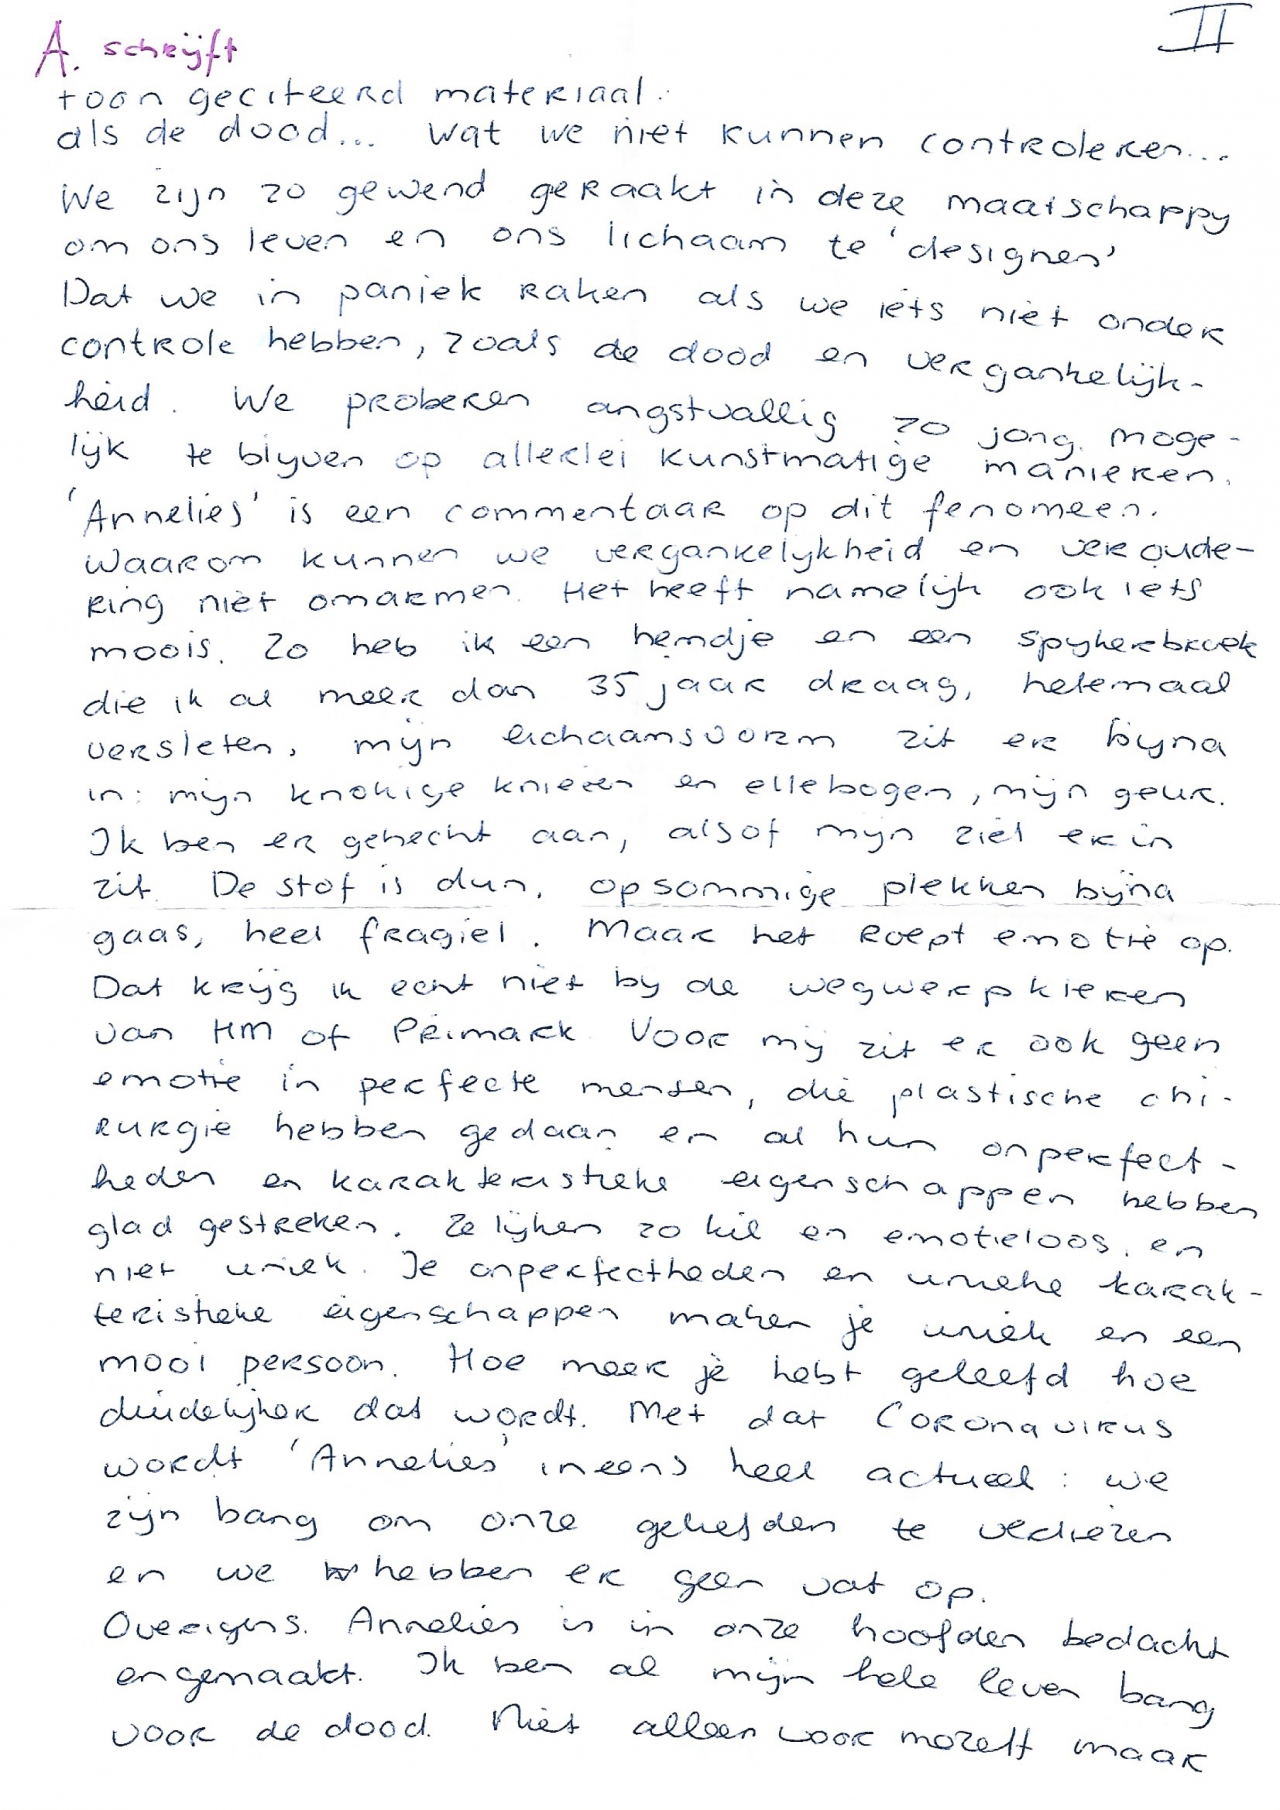 A. schrijft
II
toon geciteerd materiaal.
als de dood... Wat we niet kunnen controleren...
We zijn zo gewend geraakt in deze maatschappy
om ons leven en ons lichaam te 'designen'
Dat we in paniek raken als we iets niet onder
controle hebben, zoals de dood en vergankelijk-
heid. We proberen angstvallig zo jong moge-
lijk te blyven op allerlei kunstmatige manieren.
'Annelies' is een commentaar op dit fenomeen.
Waarom kunnen we vergankelykheid en veroude-
ring niet omarmen. Het heeft namelijk ook iets
moois. Zo heb ik een hemdje en een spykerbroek
die ik al meer dan 35 jaar draag, helemaal
versleten, mijn lichaamsvorm zit er byna
in: mijn knokige knieën en ellebogen, mijn geur.
Ik ben er gehecht aan, alsof mijn ziel er in
zit. De stof is dun, op sommige plekken bijna
gaas, heel fragiel. Maar het roept emotie op.
Dat krijg ik echt niet by de wegwerpkleren
van HM of Primark. Voor mij zit er ook geen
emotie in perfecte mensen, die plastische chi-
rurgie hebben gedaan en al hun onperfect-
heden en karakteristieke eigenschappen hebben
glad gestreken. Ze lijken zo kil en emotieloos. en
niet uniek. Je onperfectheden en unieke karak-
teristieke eigenschappen maken je uniek en een
mooi persoon. Hoe meer je hebt geleefd hoe
duidelijker dat wordt. Met dat Coronavirus
wordt 'Annelies' ineens heel actueel: we
zijn bang om onze geliefden te verliezen
en we hebben er geen vat op.
Overigens. Annelies is in onze hoofden bedacht
en gemaakt. Ik ben al mijn hele leven bang
voor de dood. Niet alleen voor mezelf maar